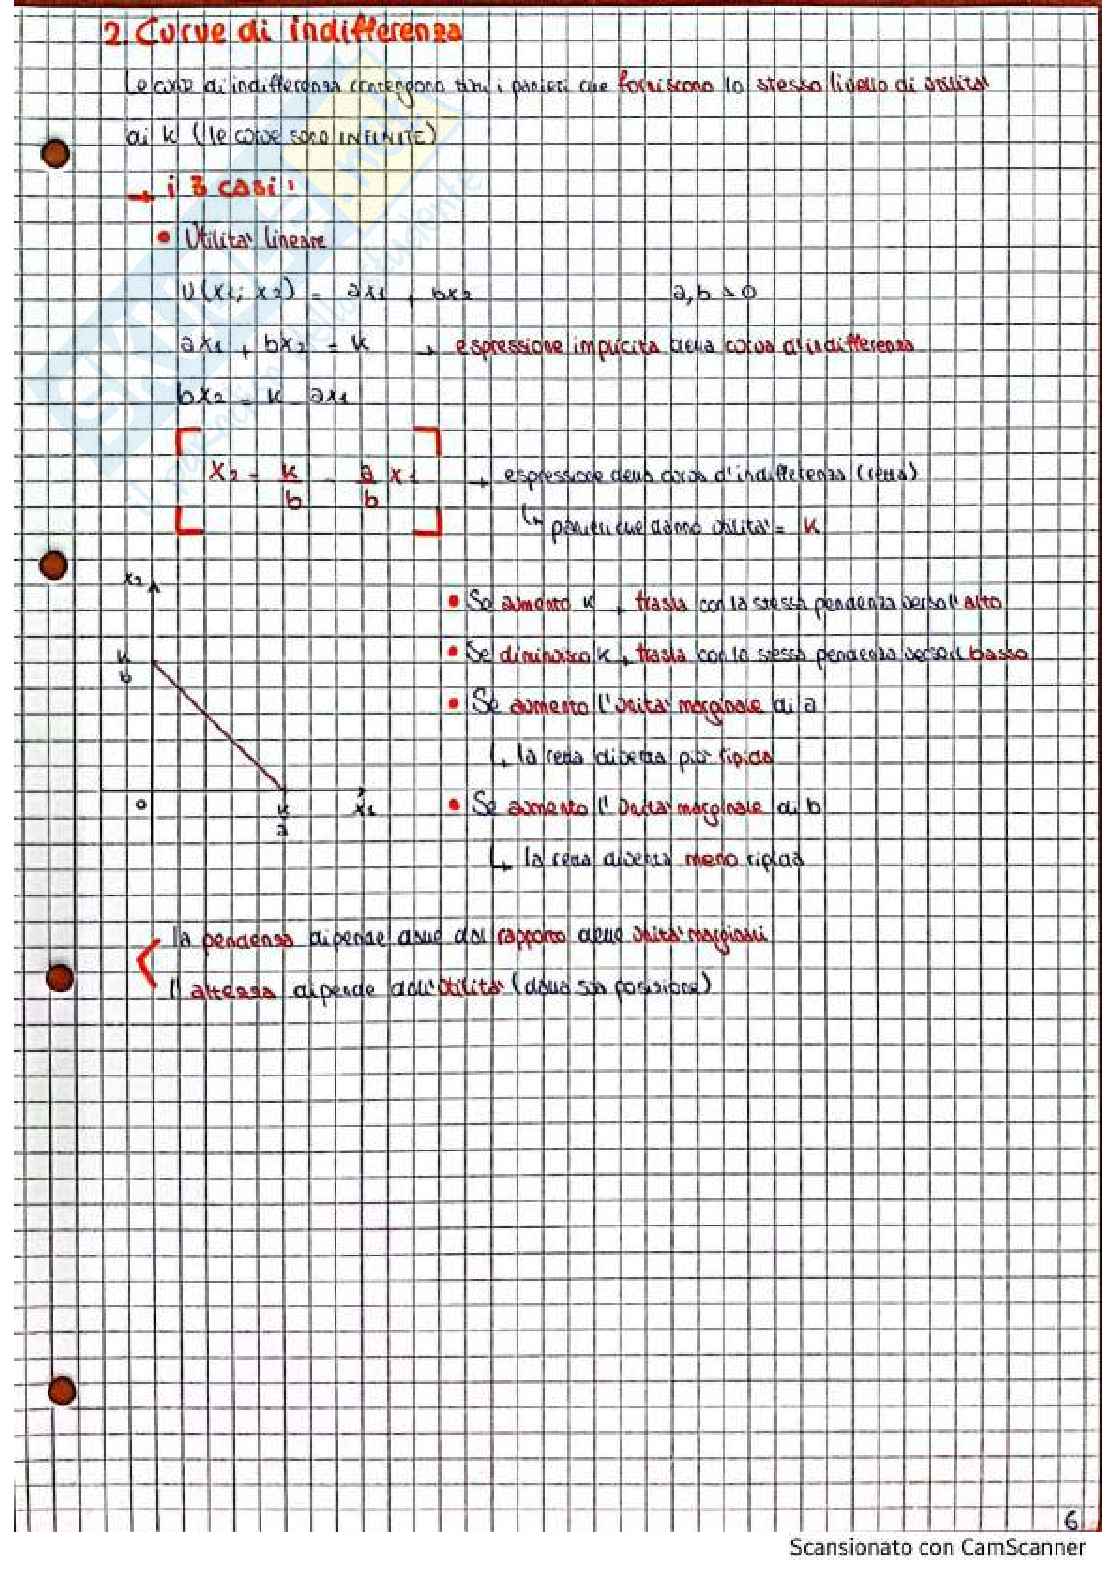 2. Curve di indifferenza
Le curve di indifferenza contengono tutti i panieri che forniscono lo stesso livello di utilità
di k (le curve sono INFINITE)
→ i 3 casi:
• Utilità lineare
U(x1; x2) = ax1 + bx2 a,b > 0
ax1 + bx2 = k → espressione implicita della curva d'indifferenza
bx2 = k - ax1
x2 = k/b - a/b x1 → espressione della curva d'indifferenza (retta)
↳ panieri che danno utilità = k
x2
k/b
• Se aumento k, trasla con la stessa pendenza verso l'alto
• Se diminuisco k, trasla con la stessa pendenza verso il basso
• Se aumento l'utilità marginale di a
↳ la retta diventa più ripida
0 k/a x1
• Se aumento l'utilità marginale di b
↳ la retta diventa meno ripida
la pendenza dipende dal rapporto delle utilità marginali
l'altezza dipende dall'utilità (dalla sua posizione)
6
Scansionato con CamScanner